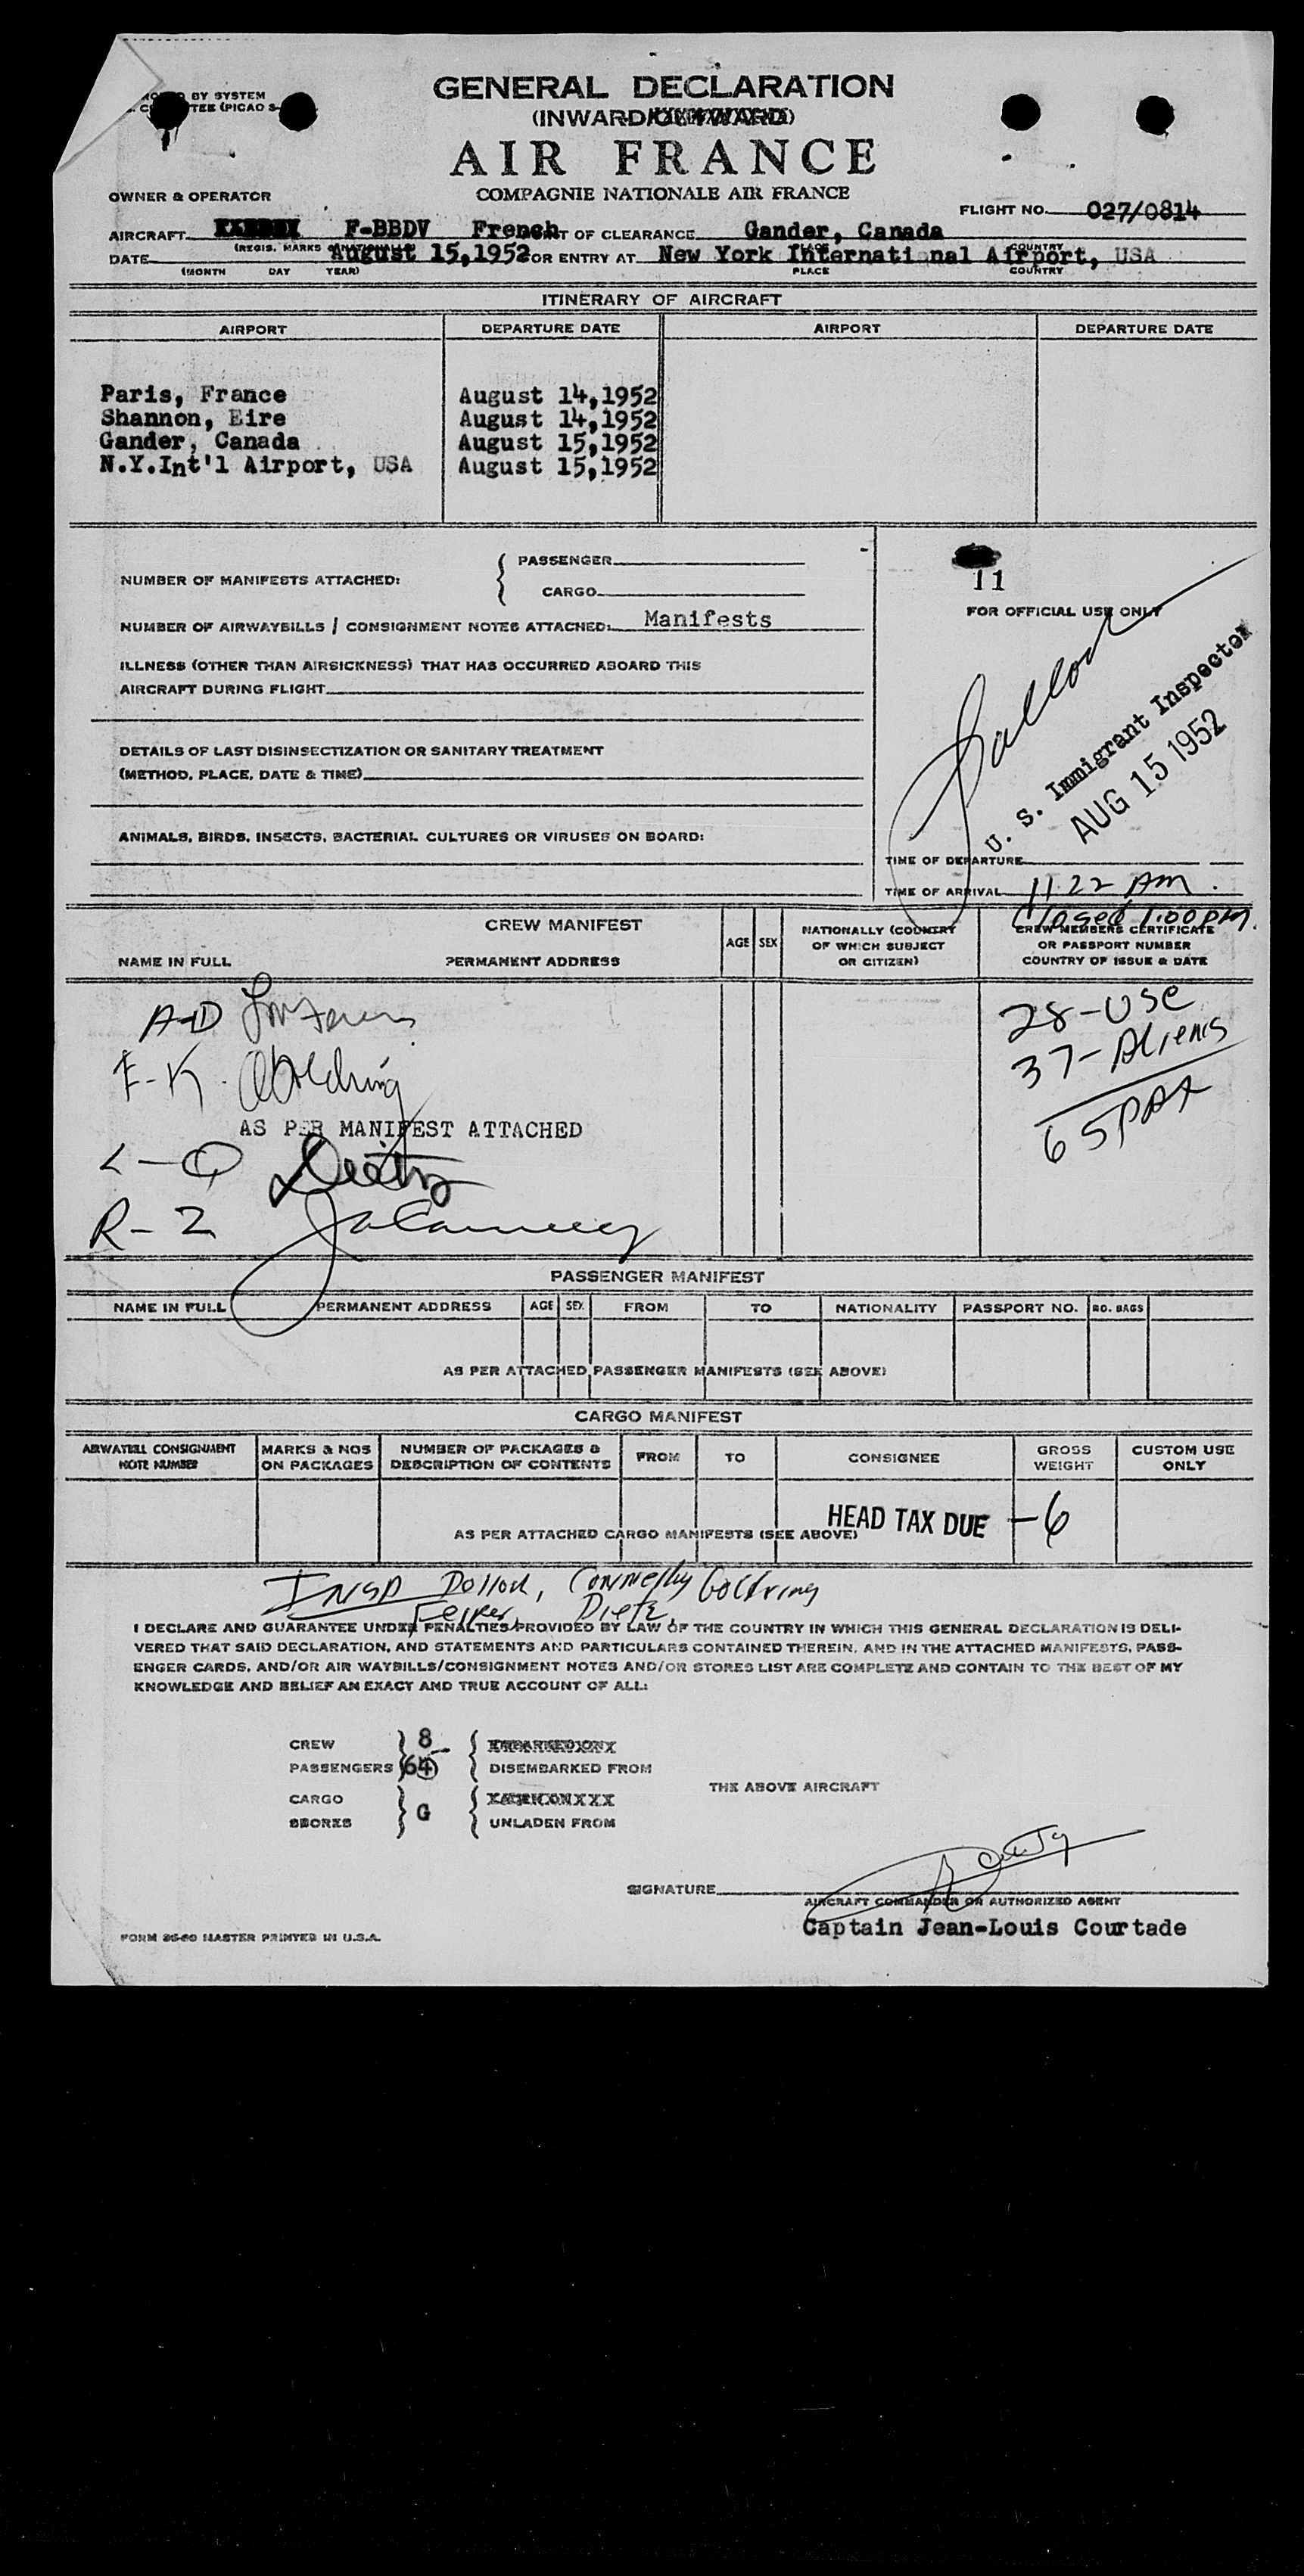 BY SYSTEM
(PICAO
GENERAL DECLARATION
(INWARD/OUTWARD)
AIR FRANCE
COMPAGNIE NATIONALE AIR FRANCE
OWNER & OPERATOR
FLIGHT NO. 027/0814
AIRCRAFT F-BBDV French OF CLEARANCE Gander, Canada
(REGIS. MARKS & NATIONALITY) PLACE COUNTRY
DATE August 15,1952 OR ENTRY AT New York International Airport, USA
(MONTH DAY YEAR) PLACE COUNTRY
ITINERARY OF AIRCRAFT
AIRPORT DEPARTURE DATE AIRPORT DEPARTURE DATE
Paris, France August 14,1952
Shannon, Eire August 14,1952
Gander, Canada August 15,1952
N.Y.Int'l Airport, USA August 15,1952
NUMBER OF MANIFESTS ATTACHED: { PASSENGER
CARGO
11
FOR OFFICIAL USE ONLY
NUMBER OF AIRWAYBILLS / CONSIGNMENT NOTES ATTACHED: Manifests
ILLNESS (OTHER THAN AIRSICKNESS) THAT HAS OCCURRED ABOARD THIS
AIRCRAFT DURING FLIGHT
DETAILS OF LAST DISINSECTIZATION OR SANITARY TREATMENT
(METHOD, PLACE, DATE & TIME)
ANIMALS, BIRDS, INSECTS, BACTERIAL CULTURES OR VIRUSES ON BOARD:
U. S. Immigrant Inspector
AUG 15 1952
TIME OF DEPARTURE
TIME OF ARRIVAL 11 22 AM.
Closed 1:00 PM.
CREW MANIFEST
NAME IN FULL PERMANENT ADDRESS AGE SEX
NATIONALLY (COUNTRY
OF WHICH SUBJECT
OR CITIZEN)
CREW MEMBERS CERTIFICATE
OR PASSPORT NUMBER
COUNTRY OF ISSUE & DATE
A-D
28-USC
37-Aliens
65 PAX
E-K.
AS PER MANIFEST ATTACHED
L-Q Dietz
R-Z
PASSENGER MANIFEST
NAME IN FULL PERMANENT ADDRESS AGE SEX FROM TO NATIONALITY PASSPORT NO. NO. BAGS
AS PER ATTACHED PASSENGER MANIFESTS (SEE ABOVE)
CARGO MANIFEST
AIRWAYBILL CONSIGNMENT
NOTE NUMBER
MARKS & NOS
ON PACKAGES
NUMBER OF PACKAGES &
DESCRIPTION OF CONTENTS
FROM TO CONSIGNEE
GROSS
WEIGHT
CUSTOM USE
ONLY
HEAD TAX DUE -6
AS PER ATTACHED CARGO MANIFESTS (SEE ABOVE)
INSP Connelly Goldring
Dietz,
I DECLARE AND GUARANTEE UNDER PENALTIES PROVIDED BY LAW OF THE COUNTRY IN WHICH THIS GENERAL DECLARATION IS DELI-
VERED THAT SAID DECLARATION, AND STATEMENTS AND PARTICULARS CONTAINED THEREIN, AND IN THE ATTACHED MANIFESTS, PASS-
ENGER CARDS, AND/OR AIR WAYBILLS/CONSIGNMENT NOTES AND/OR STORES LIST ARE COMPLETE AND CONTAIN TO THE BEST OF MY
KNOWLEDGE AND BELIEF AN EXACT AND TRUE ACCOUNT OF ALL:
CREW 8 EMBARKED ON
PASSENGERS 64 DISEMBARKED FROM
THE ABOVE AIRCRAFT
CARGO
STORES G UNLADEN FROM
SIGNATURE
AIRCRAFT COMMANDER OR AUTHORIZED AGENT
Captain Jean-Louis Courtade
FORM 85-60 MASTER PRINTED IN U.S.A.